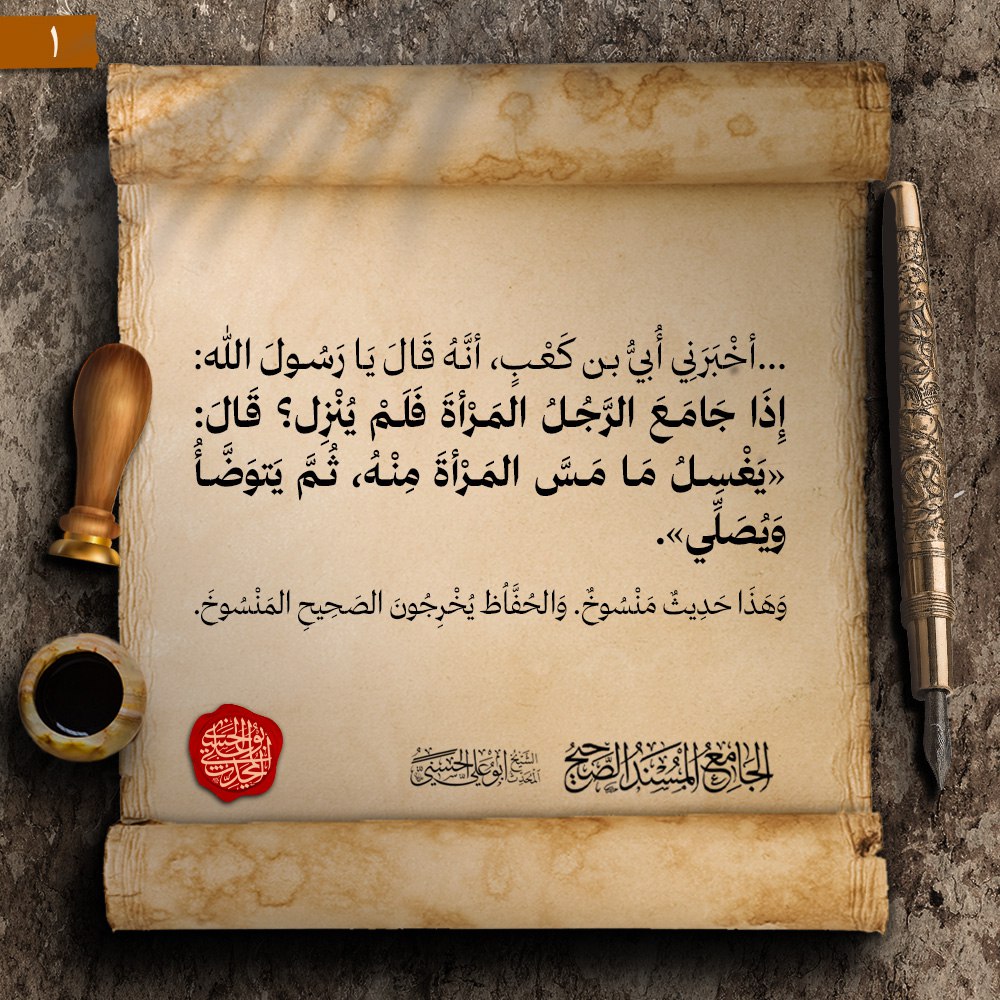 ١
...أخْبَرَنِي أُبَيُّ بن كَعْبٍ، أنَّهُ قَالَ يَا رَسُولَ الله:
إِذَا جَامَعَ الرَّجُلُ المَرْأةَ فَلَمْ يُنْزِل؟ قَالَ:
«يَغْسِلُ مَا مَسَّ المَرْأةَ مِنْهُ، ثُمَّ يَتوَضَّأُ
وَيُصَلِّي».
وَهَذَا حَدِيثٌ مَنْسُوخٌ. وَالحُفَّاُظ يُخْرِجُونَ الصَحِيحِ المَنْسُوخَ.
الجَامِعُ المُسْنَدُ الصَّحِيحُ
الشَّيْخُ المُحَدِّثُ أَبُو عَلِي الحَسَنِيّ